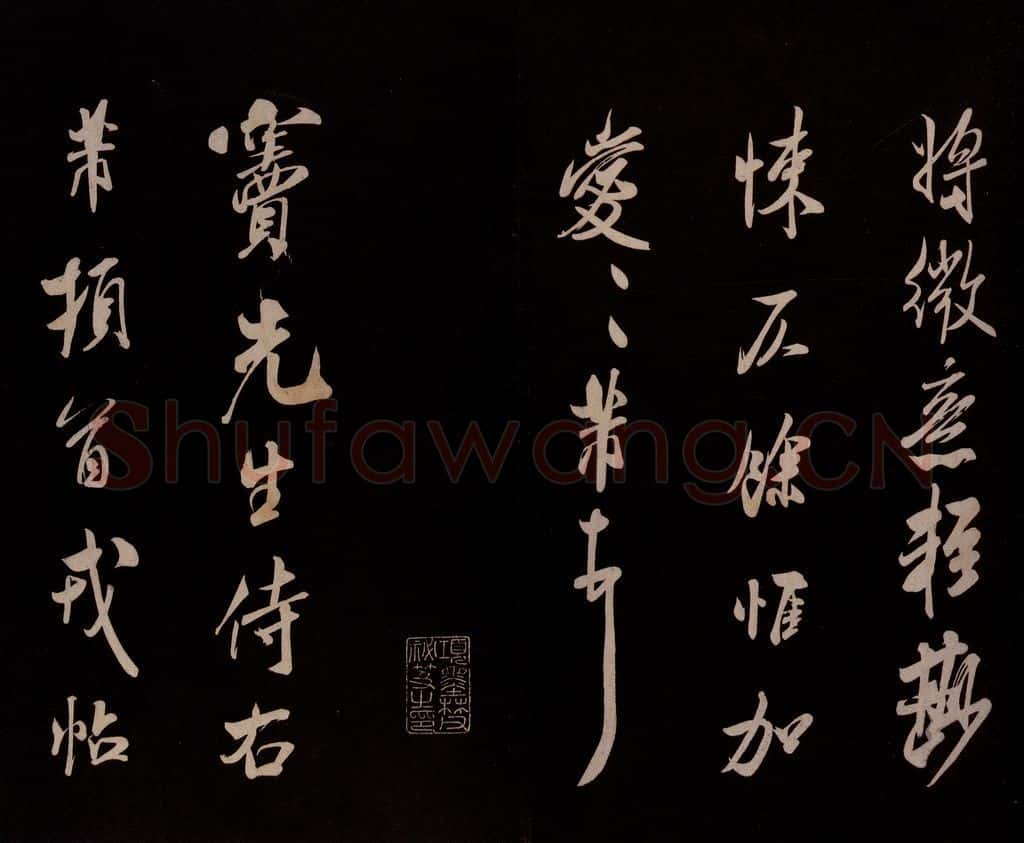 將微意輕尠
悚仄餘惟加
愛、、芾
竇先生侍右
芾頓首戎帖
項墨林父
秘笈之印
Shufawang.CN